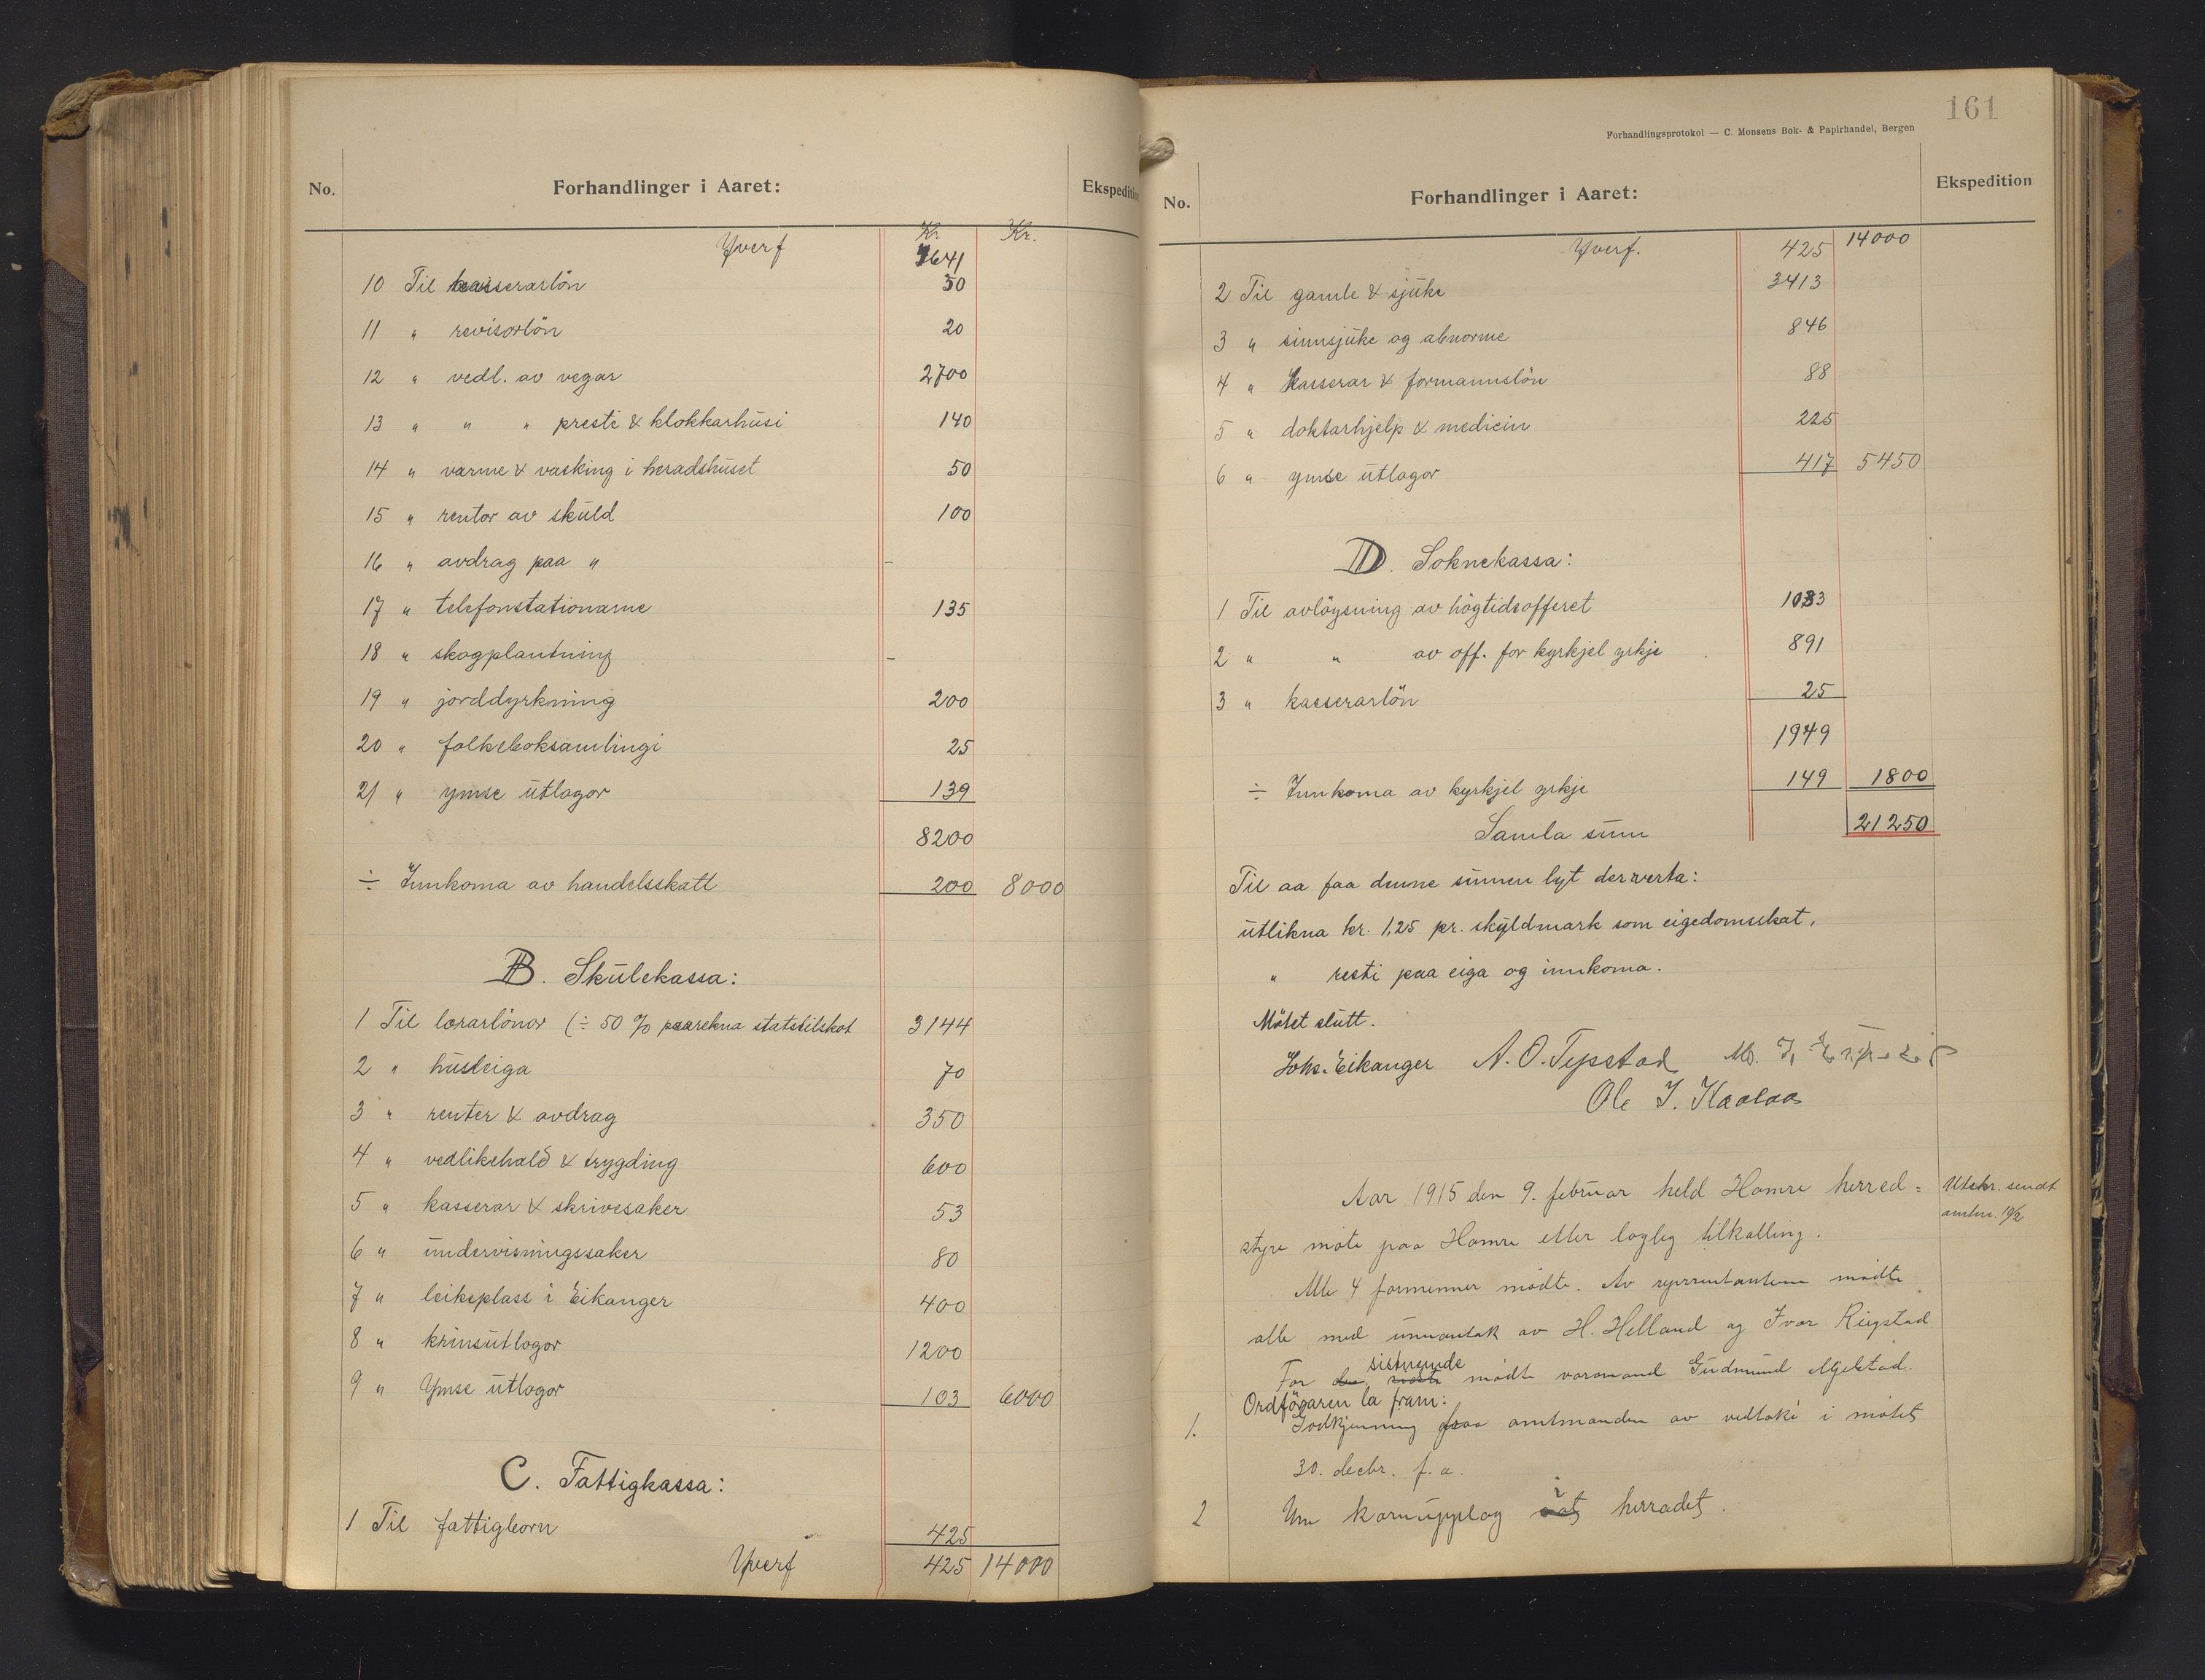 No. Forhandlinger i Aaret: Ekspedition
Kr. Kr.
Yverf 4641
10 Til kasserarlön 50
11 " revisorlön 20
12 " vedl. av vegar 2700
13 " " " presti & klokkarhusi 140
14 " varme & vasking i heradshuset 50
15 " rentor av skuld 100
16 " avdrag paa " –
17 " telefonstationarne 135
18 " skogplantning –
19 " jorddyrkning 200
20 " folkeboksamlingi 25
21 " ymse utlagor 139
8200
÷ Innkoma av handelsskatt 200 8000
B. Skulekassa:
1 Til lærarlönor (÷ 50 % paarekna statstilskot 3144
2 " husleiga 70
3 " renter & avdrag 350
4 " vedlikehald & trygding 600
5 " kasserar & skrivesaker 53
6 " undervisningssaker 80
7 " leikeplass i Eikanger 400
8 " krinsutlogor 1200
9 " Ymse utlogor 103 6000
C. Fattigkassa:
1 Til fattigborn 425
Yverf 425 14000
161
Forhandlingsprotokol — C. Monsens Bok- & Papirhandel, Bergen
No. Forhandlinger i Aaret: Ekspedition
Yverf. 425 14000
2 Til gamle & sjuke 3413
3 " sinnsjuke og abnorme 846
4 " Kasserar & formannslön 88
5 " doktarhjelp & medicin 225
6 " ymse utlagor 417 5450
D. Soknekassa:
1 Til avlöysning av högtidsofferet 1033
2 " " av off. for kyrkjel yrkje 891
3 " kasserarlön 25
1949
÷ Innkoma av kyrkjel yrkje 149 1800
Samla sum 21250
Til aa faa denne summen lyt derverta:
utlikna kr. 1,25 pr. skyldmark som eigedomsskat,
" resti paa eiga og innkoma.
Mötet slutt.
Johs. Eikanger A. O. Tepstad M. J.
Ole J. Kaalaas
Aar 1915 den 9. februar held Hamre herred=
styre möte paa Hamre etter logleg tilkalling.
Utskr. sendt
amtm. 10/2
Alle 4 formenner mödte. Av representantene mödte
alle med unnantak av H. Helland og Ivar Rigstad
For sistnemde mödte varamand Gudmund Mjelstad.
Ordföraren la fram:
1. Godkjenning fraa amtmanden av vedtaki i mötet
30. decbr. f. a.
2 Um kornupplag i herradet.